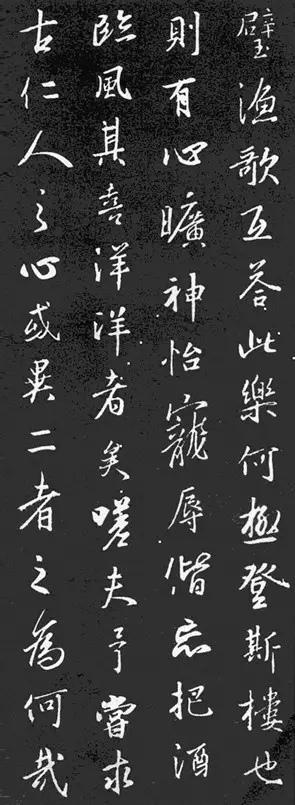 璧漁歌互答此樂何極登斯樓也
則有心曠神怡寵辱偕忘把酒
臨風其喜洋洋者矣嗟夫予嘗求
古仁人之心或異二者之為何哉